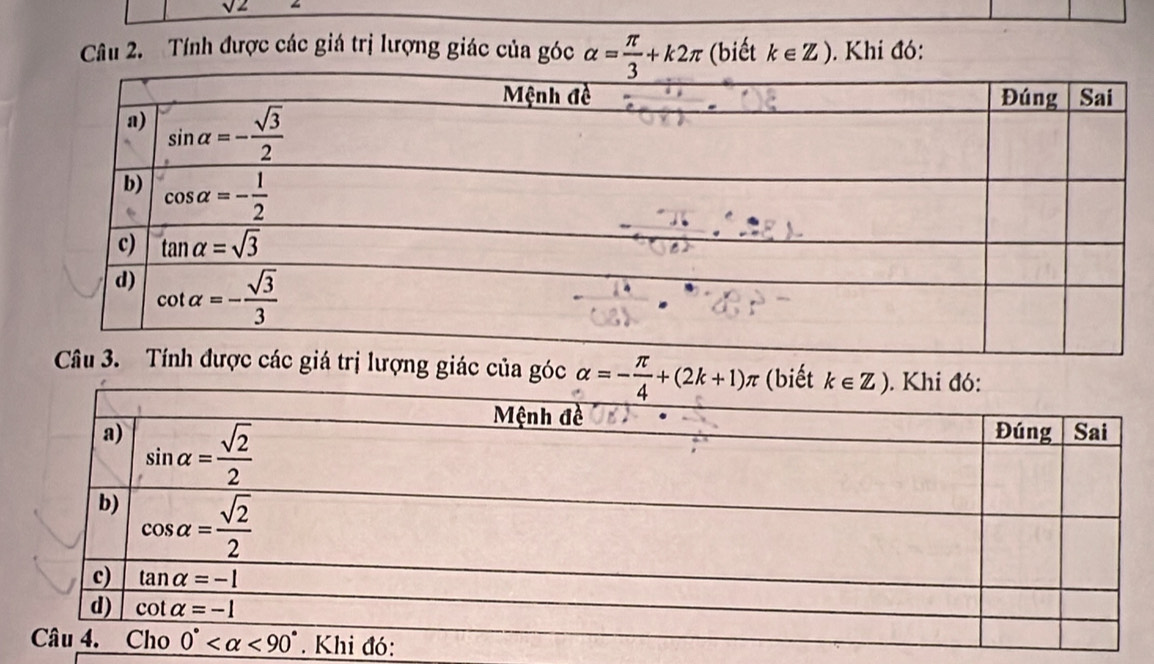 √2 2
Câu 2. Tính được các giá trị lượng giác của góc α = π/3 + k2π (biết k ∈ ℤ). Khi đó:
Mệnh đề Đúng Sai
a) sin α = -√3/2
b) cos α = -1/2
c) tan α = √3
d) cot α = -√3/3
Câu 3. Tính được các giá trị lượng giác của góc α = -π/4 + (2k+1)π (biết k ∈ ℤ). Khi đó:
Mệnh đề Đúng Sai
a) sin α = √2/2
b) cos α = √2/2
c) tan α = -1
d) cot α = -1
Câu 4. Cho 0° < α < 90°. Khi đó: